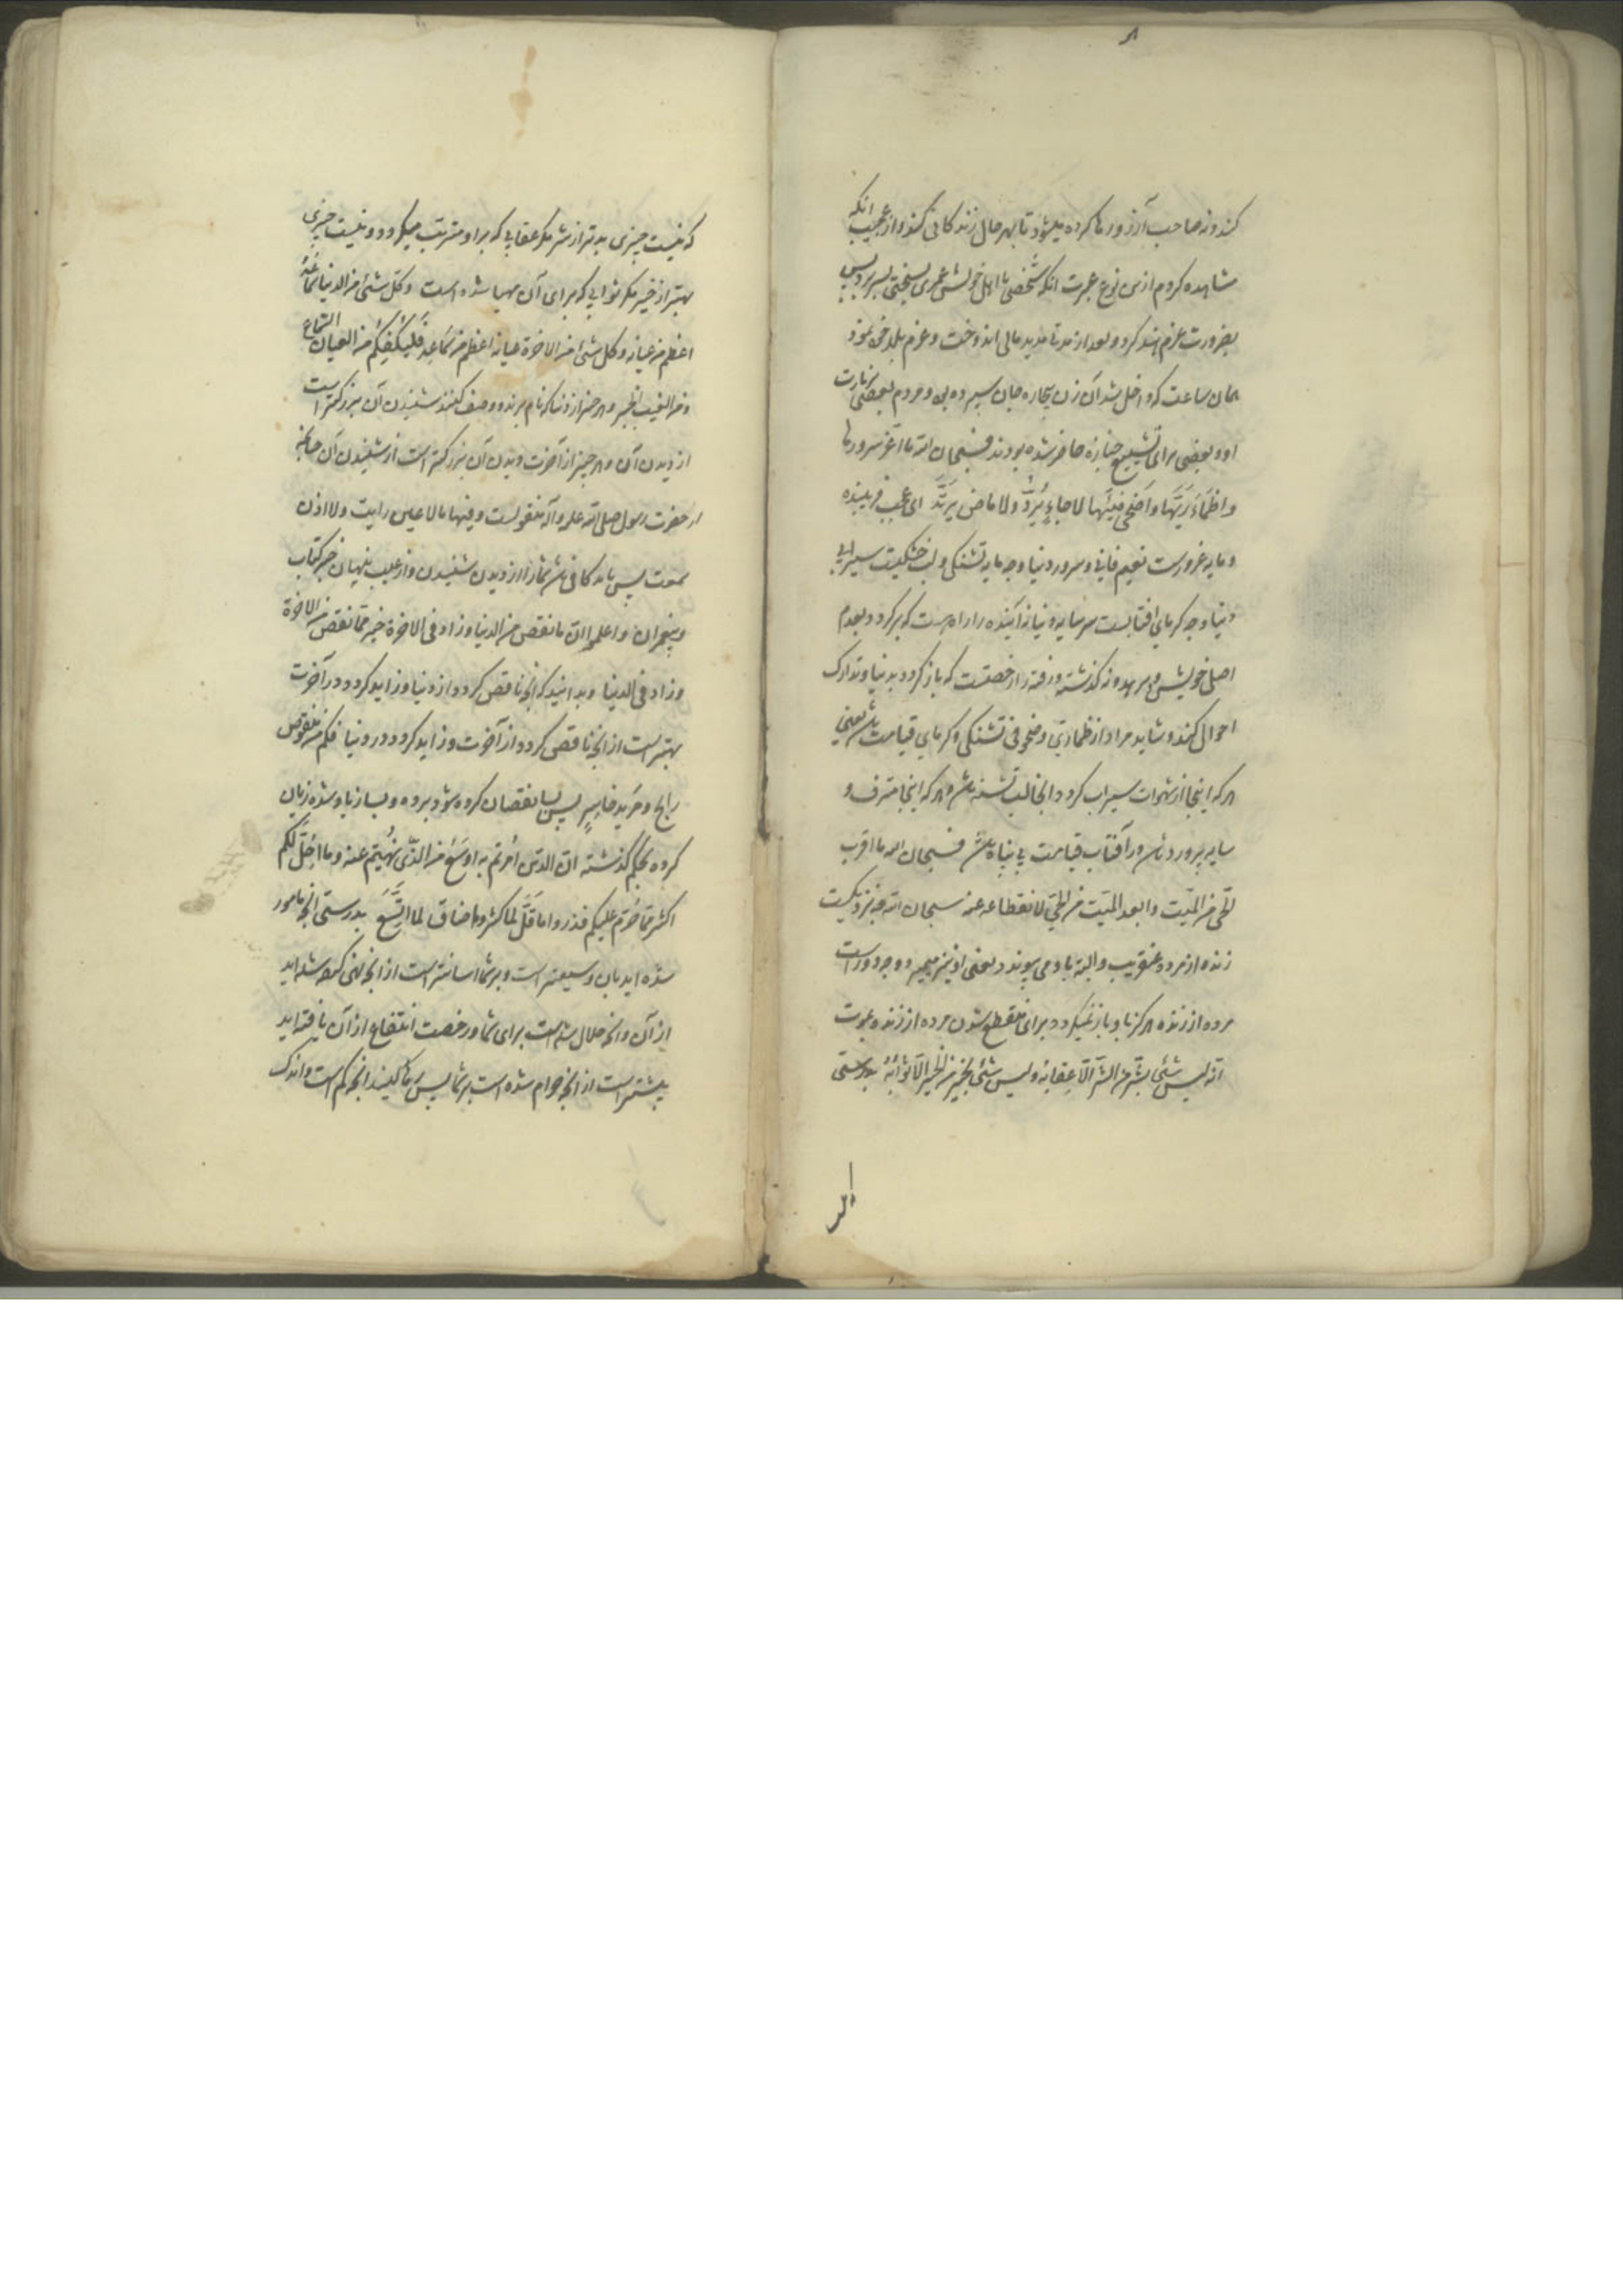 کند و نه صاحب آرزو رها کرده میشود تا بهر حال زندکانی کند و از عجیب انکه
مشاهده کردم ازین نوع عبرت انکه شخصی با اهل خویش عمری بسختی بسر برد پس
بضرورت عزم هند کرد و بعد از مدتها مدید مالی اندوخت و عزم بلد خود نمود
همان ساعت که داخل شد آن زن بیچاره جان سپرده بود و مردم بعضی زیارت
او و بعضی برای تشییع جنازه حاضر شده بودند فسبحان الله ما اغر سرورها
و اظمأ ریّها و اضحی فیئها لا جاءٍ یُردّ ولا ماض یرتدّ ای عجب فریبنده
و مایه غرورست نعیم فانی و سرور دنیا و چه مایه تشنکی و لب خشکیت سیرابی
دنیا و چه کرمای افتابست سر سایه دنیا نه آینده را راه هست که برکردد بعدم
اصلی خویش و نه کذشته و رفته را رخصتست که باز کردد بدنیا و تدارک
احوالی کند و شاید مراد از ظماء ریّ و ضحو فی تشنکی و کرمای قیامت باشد یعنی
هر که اینجا از شهوات سیراب کردد انجا لب تشنه باشد و هر که اینجا مترف و
سایه پرورد باشد در آفتاب قیامت بی پناه باشد فسبحان الله ما اقرب
الحیّ من المیّت و ابعد المیّت من الحیّ لانقطاعه عنه سبحان الله چه نزدیکیست
زنده از مرده عنقریب و البته باو می پیوندد یعنی او نیز میمیرد و چه دور است
مرده از زنده هرکز باو باز نمیکردد برای منقطع شدن مرده از زنده بموت
انّه لیس شئ بشرّ من الشرّ الّا عقابه و لیس شئ بخیر من الخیر الّا ثوابهُ بدرستی
که نیست چیزی بدتر از شر مکر عقابی که بر او مترتب میکردد و نیست چیزی
بهتر از خیر مکر ثوابی که برای آن مهیا شده است و کل شئ من الدنیا سماعهُ
اعظم من عیانه و کل شئ من الاخرة عیانه اعظم من سماعه فلیکفکم من العیان السماع
و من الغیب الخبر و هر چیز از دنیا که نام برند و وصف کنند شنیدن آن بزرکتر است
از دیدن آن و هر چیز از آخرت دیدن آن بزرکتر است از شنیدن آن چنانچه
از حضرت رسول صلی الله علیه و آله منقولست و فیها ما لا عین رایت و لا اذن
سمعت پس باید کافی باشد شما را از دیدن شنیدن و از غیب پنهان خبر کتاب
و پیغمبران و اعلموا ان ما نقص من الدنیا و زاد فی الاخرة خیر مما نقص من الاخرة
و زاد فی الدنیا و بدانید که انچه ناقص کردد از دنیا و زاید کردد در آخرت
بهتر است از انچه ناقص کردد از آخرت و زاید کردد در دنیا فکم من منقوص
رابح و مزید خاسرٍ پس بسا نقصان کرده سود برده و بسا زیاد شده زیان
کرده بحکم کذشته انّ الذی اُمرتم به اوسع من الذی نُهیتم عنه و ما اُحلّ لکم
اکثر مما حُرّم علیکم فذروا ما قلّ لما کثر و ما ضاق لما اتّسع بدرستی انچه مامور
شده اید بان وسیعتر است و بر شما اسانتر است از انچه نهی کرده شده اید
از آن و انچه حلال شده است برای شما و رخصت انتفاع از آن یافته اید
بیشتر است از انچه حرام شده است بر شما پس رها کنید انچه کم است و اندک